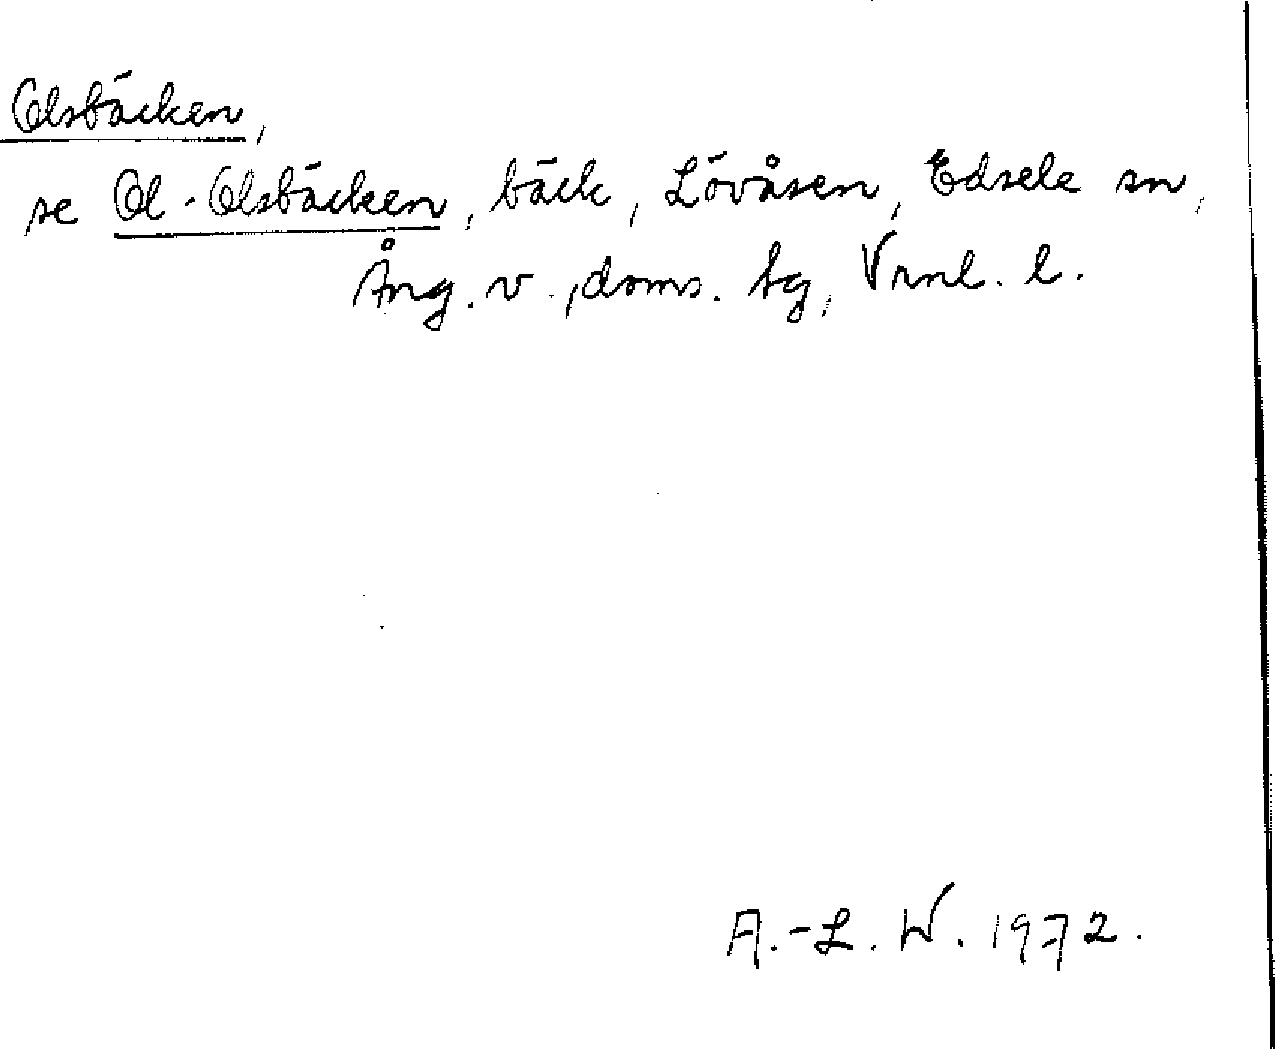 Olsbäcken,
se Ol-Olsbäcken, bäck, Lövåsen, Edsele sn,
Ång. v., doms. tg, Vrnl. l.
A.-L. W. 1972.